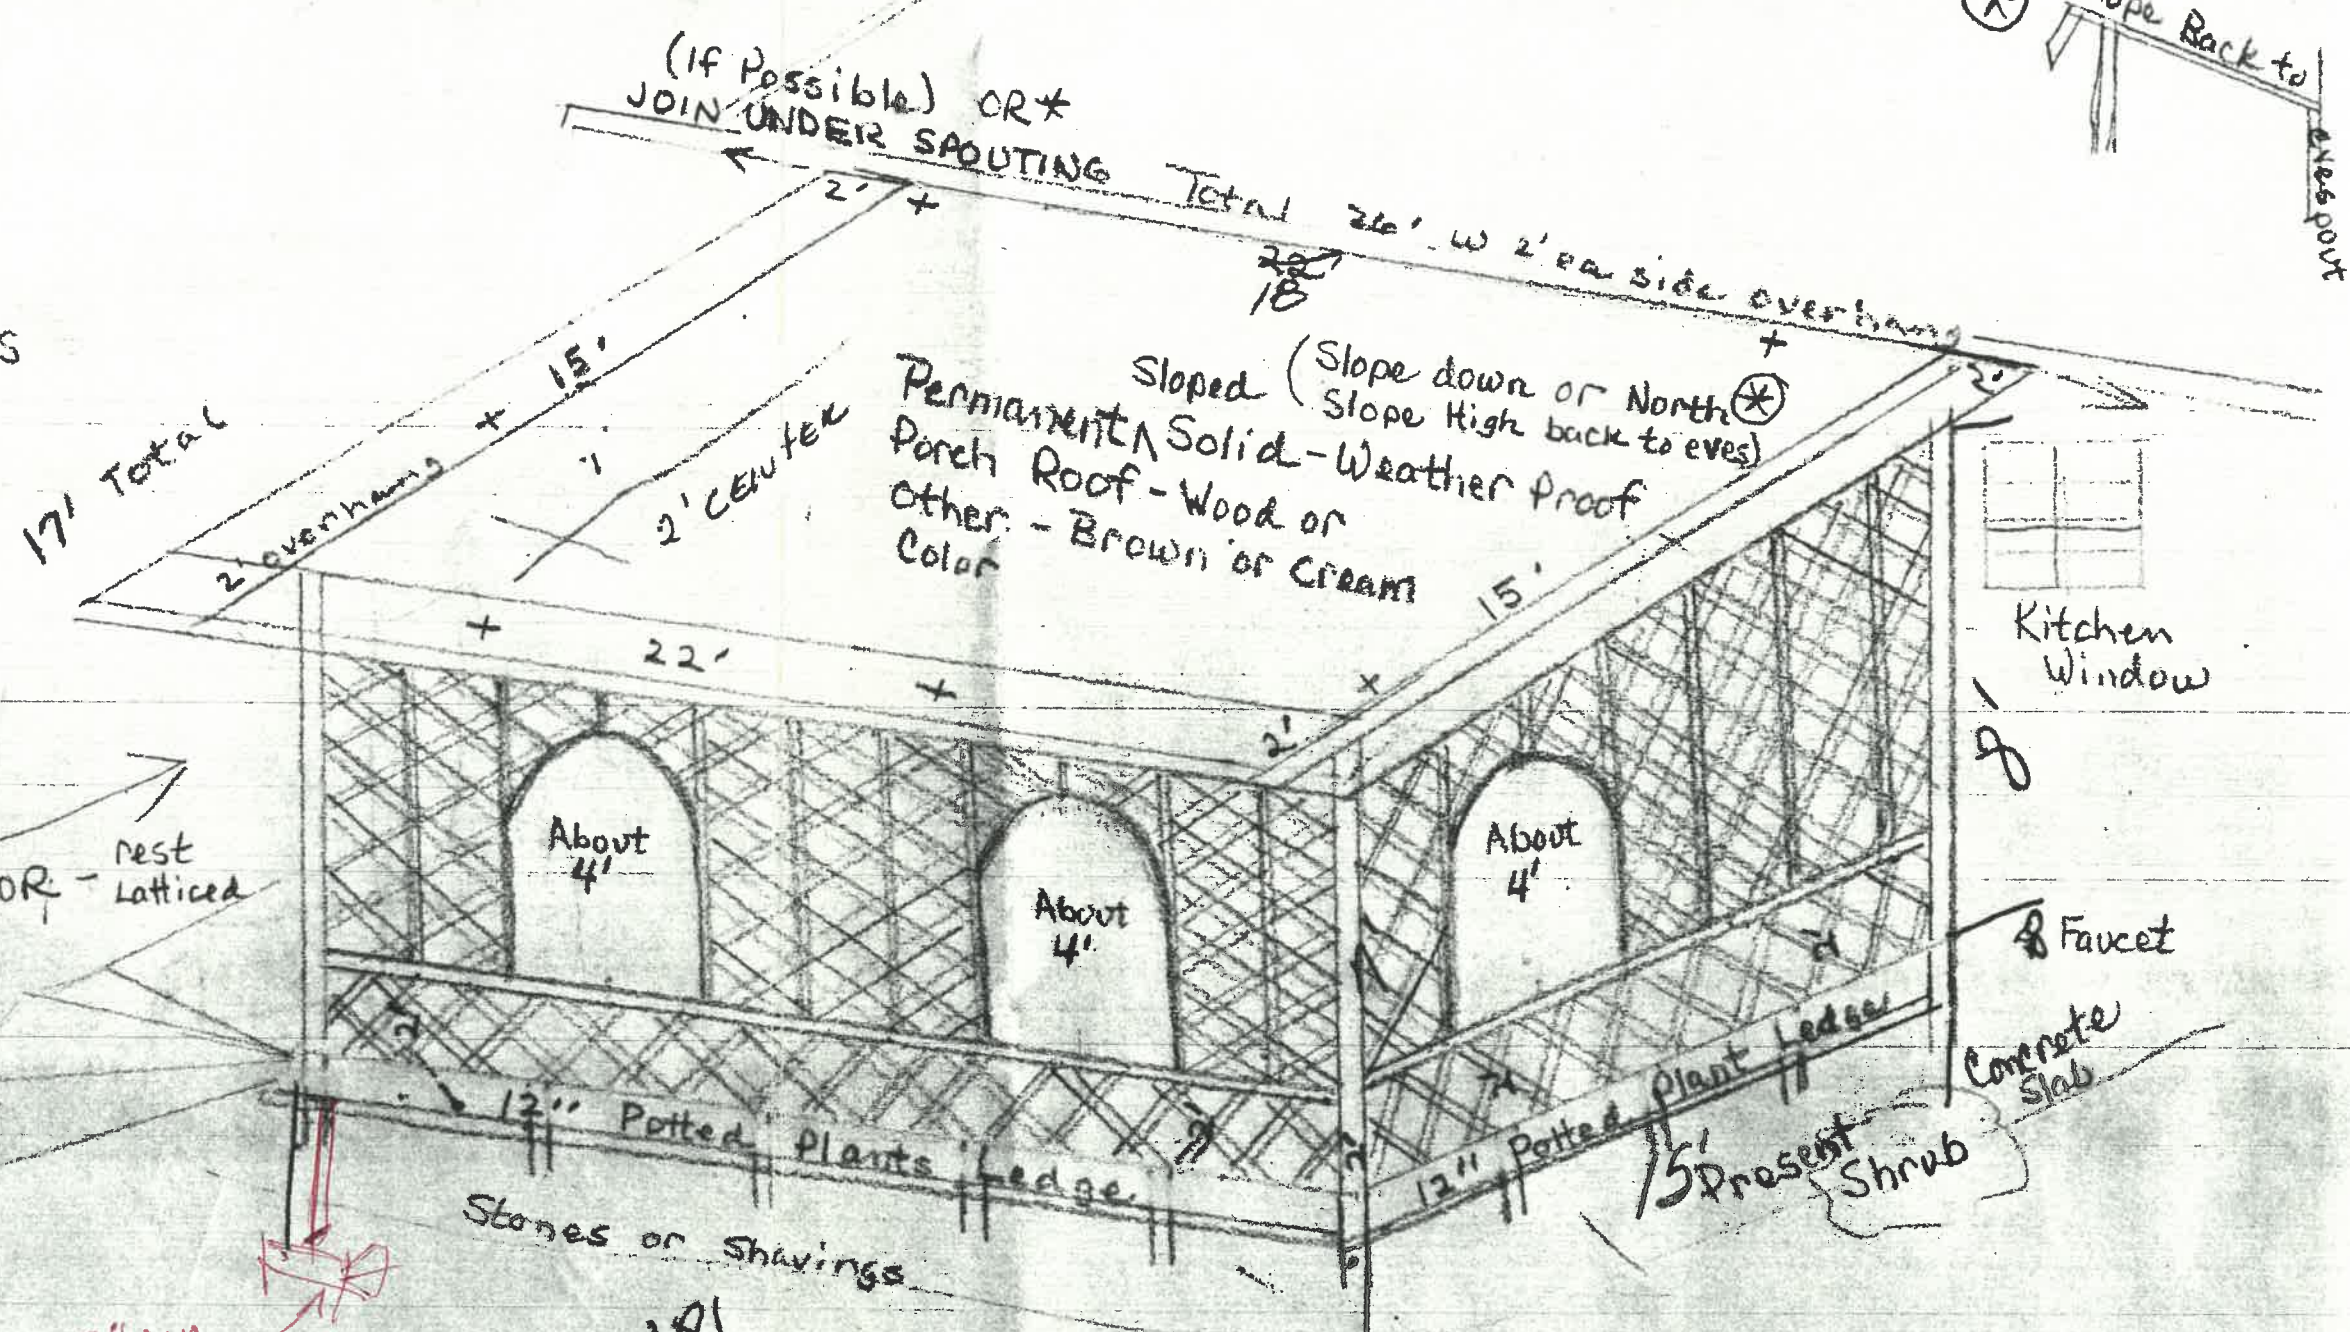 Back to
evespout
(If Possible) OR*
JOIN UNDER SPOUTING
2'
Total 26' W 2' ea side overhang
22'
18
S
15'
17' Total
2' overhang
2' CENTER
Sloped (Slope down or North *
Slope High back to eves)
2'
Permanent ^ Solid - Weather Proof
Porch Roof - Wood or
Other. - Brown or Cream
Color
15'
22'
2'
Kitchen
Window
8'
About
4'
About
4'
About
4'
OR - rest
Latticed
Faucet
Concrete
Slab
12" Potted Plants Ledge
12" Potted Plant Ledge
15'
Present
Shrub
Stones or Shavings